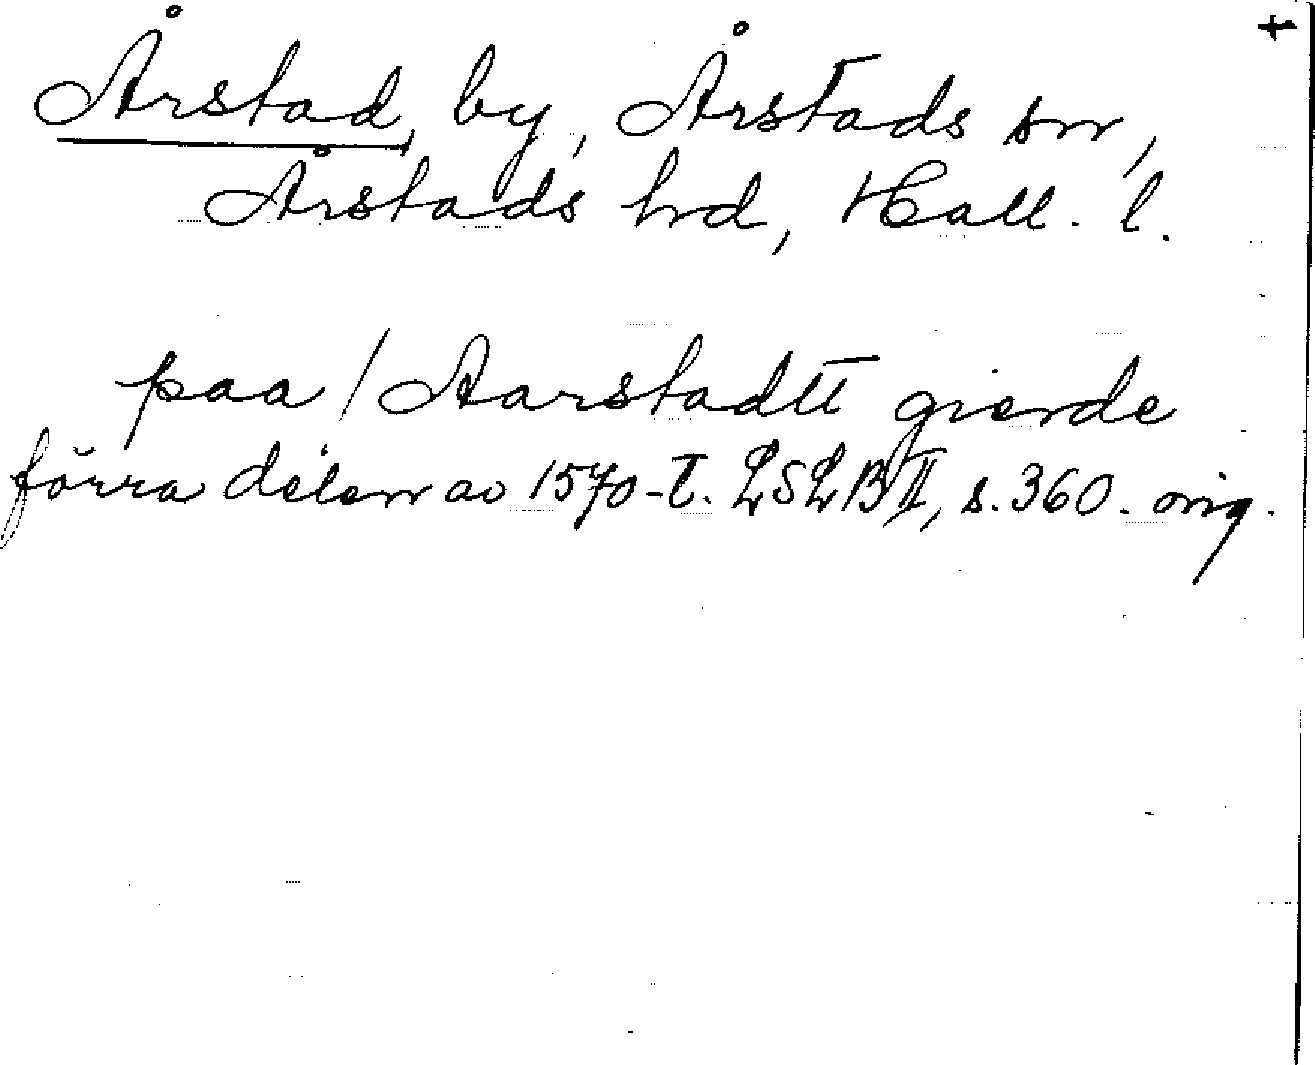 +
Årstad, by, Årstads sn,
Årstads hd, Hall. l.
paa / Aarstadtt gierde
förra delen av 1570-t. LSLB II, s. 360. orig.